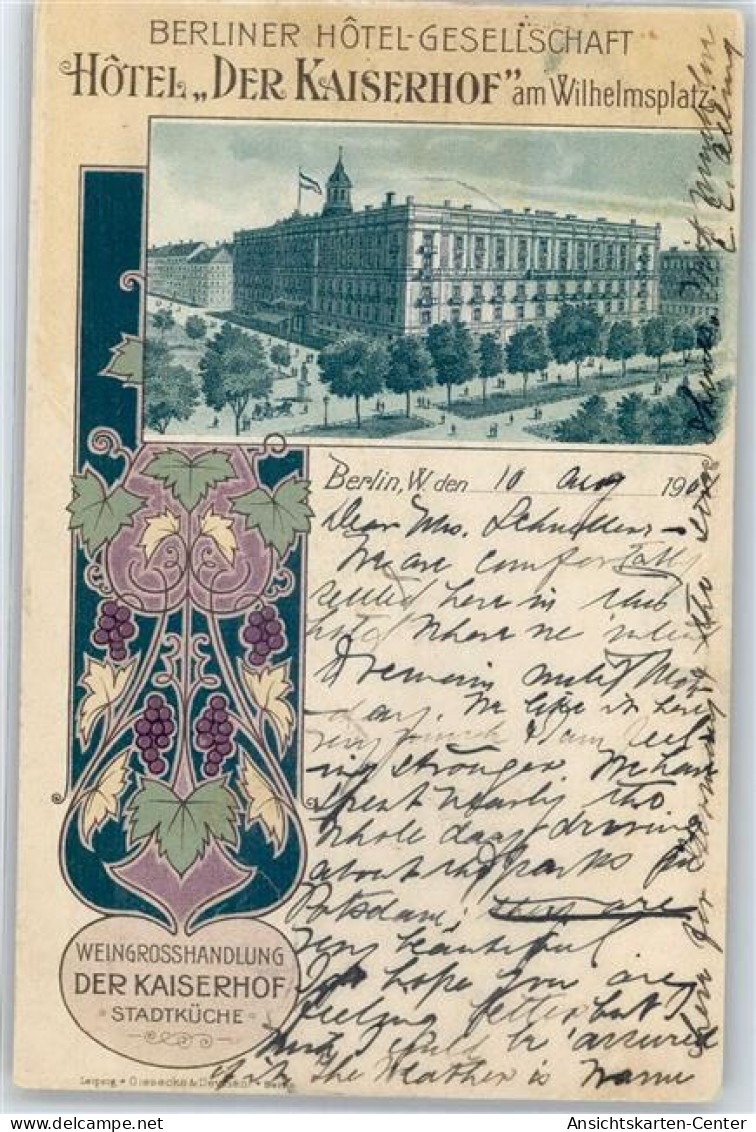 BERLINER HÔTEL-GESELLSCHAFT
HÔTEL „DER KAISERHOF" am Wilhelmsplatz.
Berlin, W. den 10 Aug 190
Dear Mrs.
We are comfortably
settled here in this
hotel where we
remain until Mon-
day. We like it here
very much & I am feel-
ing stronger. We have
spent nearly the
whole day driving
about the parks in
Potsdam; they are
very beautiful
I do hope you are
feeling better but I
and I shall be assured
if it the weather is warm
WEINGROSSHANDLUNG
DER KAISERHOF
STADTKÜCHE
Leipzig • Giesecke & Devrient • Berlin
Ansichtskarten-Center